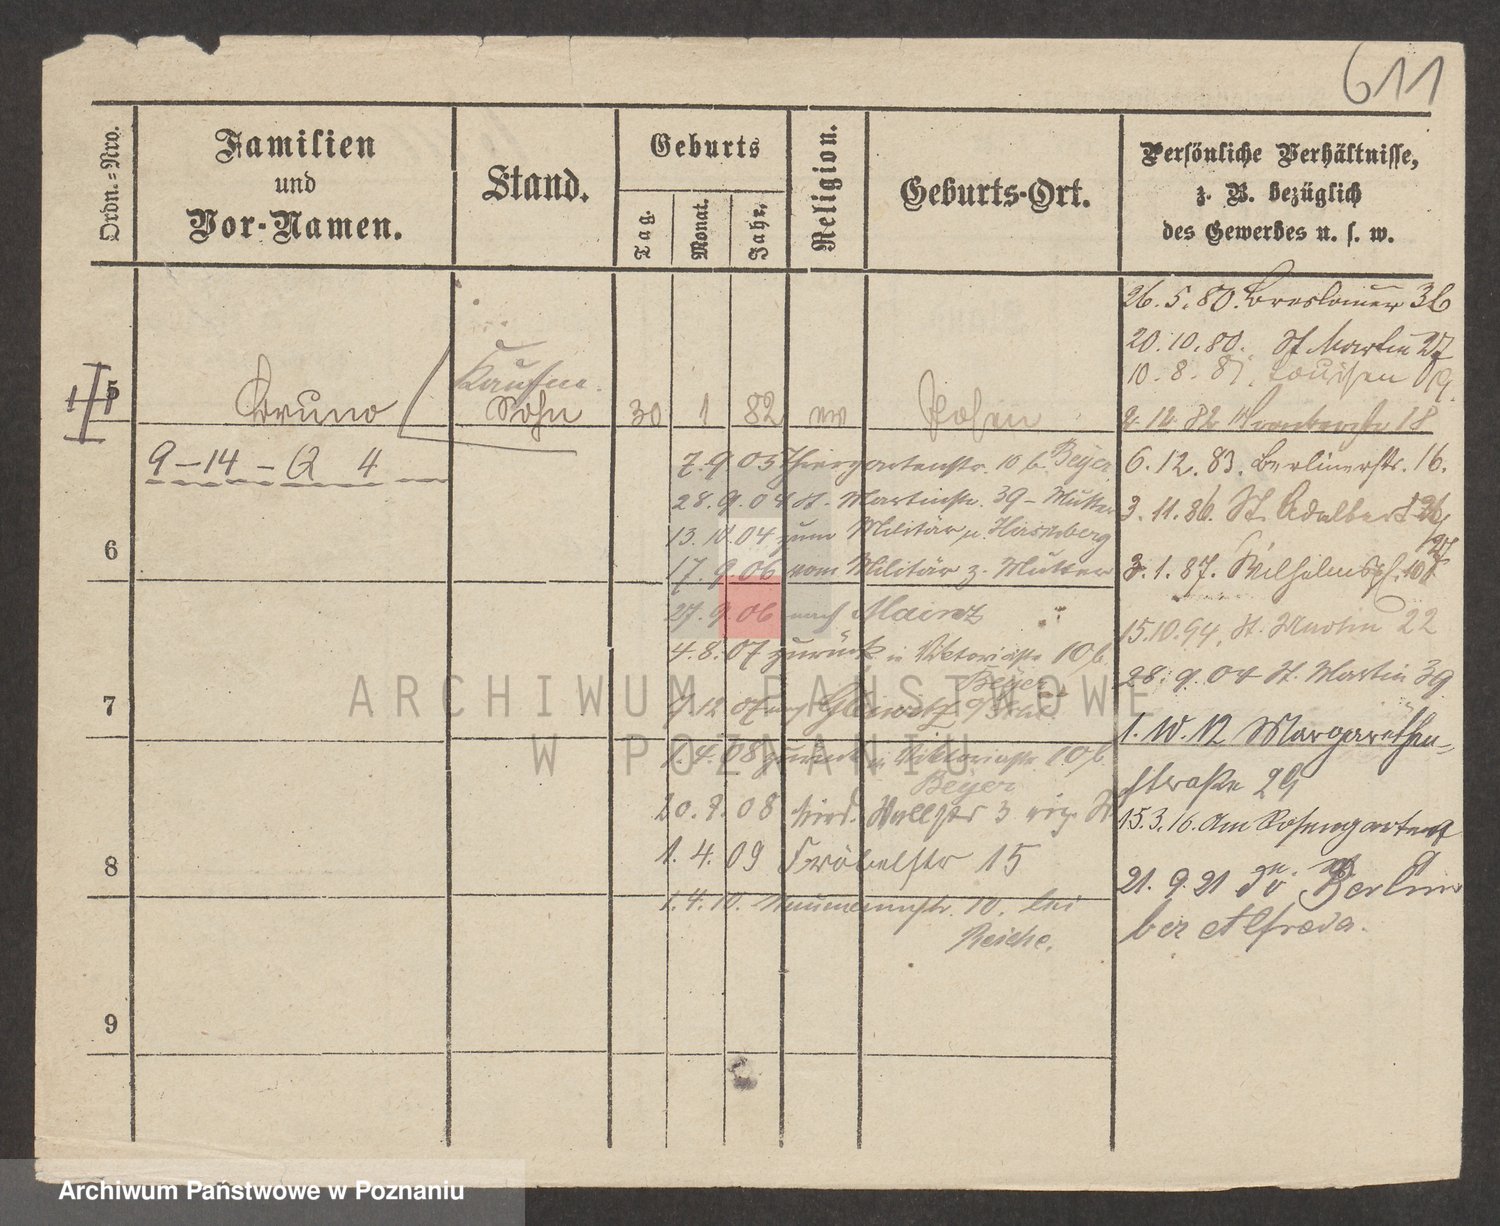 611
Ordn.=Nro.
Familien
und
Vor-Namen.
Stand.
Geburts
Tag.
Monat.
Jahr.
Religion.
Geburts-Ort.
Persönliche Verhältnisse,
z. B. bezüglich
des Gewerbes u. s. w.
5
Bruno
Kaufm.
Sohn
30 1 82 Posen
9-14-Q 4
7.9 03 Thiergartenstr. 10 b. Beyer
28.9.04 St. Martinstr. 39 - Mutter
13.10.04 zum Militär n. Hirschberg
6
17.9.06 vom Militär z. Mutter
27.9.06 nach Mainz
4.8.07 zurück Viktoriastr 10b
Beyer
7
7 12 07 Gleiwitz
1.4.08 zurück Viktoriastr 10b
Beyer
20.9.08 Wallstr 3
1.4.09 Fröbelstr 15
8
1.4.10. Naumannstr. 10. bei
Reiche.
9
26.5.80. Breslauer 36
20.10.80. St Martin 27
10.8.81. Louisen 19.
18
6.12.83. Berlinerstr. 16.
3.11.86. St. Adalbert
3.1.87. Wilhelmspl.
15.10.94. St. Martin 22
28.9.04 St. Martin 39
1.10.12 Margarethen-
straße 29
15.3.16. Am Rosengarten
21.9.21 Berlin
bei Alfreda.
ARCHIWUM PAŃSTWOWE
W POZNANIU
Archiwum Państwowe w Poznaniu